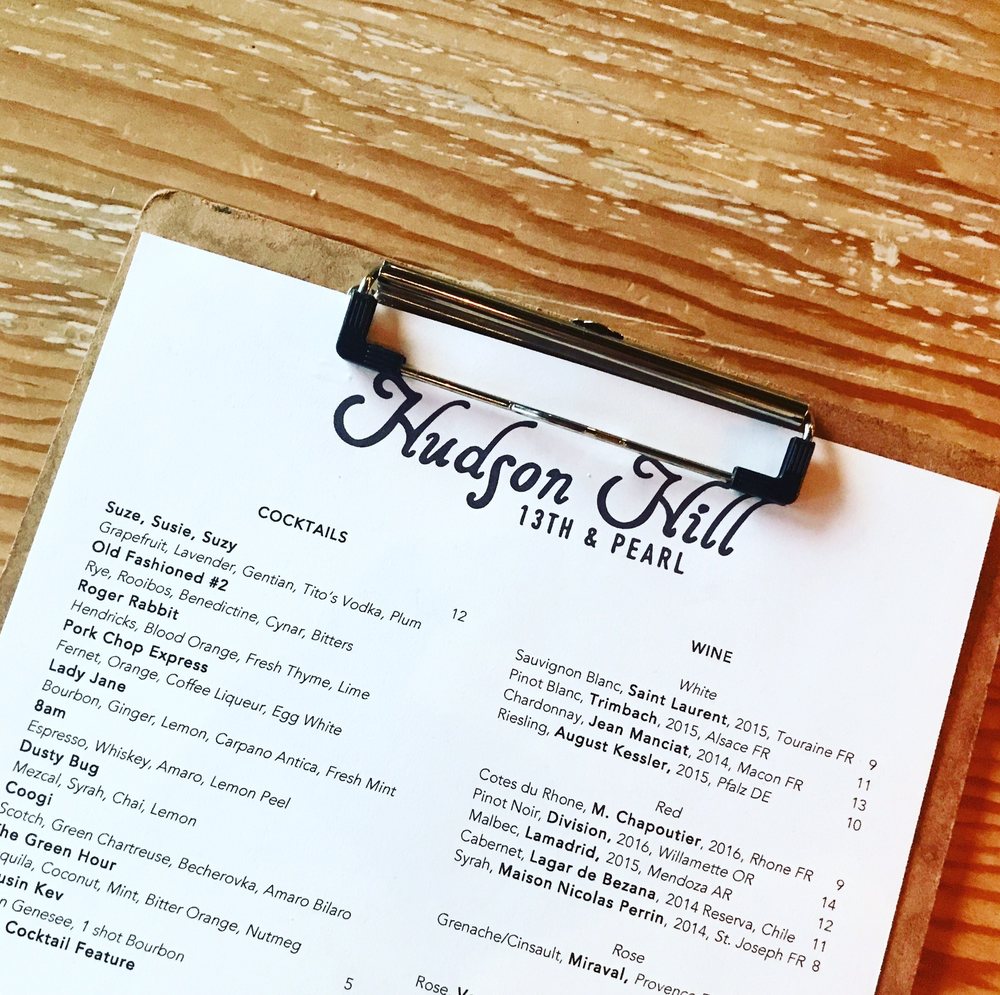 Hudson Hill
13TH & PEARL
COCKTAILS
Suze, Susie, Suzy
Grapefruit, Lavender, Gentian, Tito's Vodka, Plum 12
Old Fashioned #2
Rye, Rooibos, Benedictine, Cynar, Bitters
Roger Rabbit
Hendricks, Blood Orange, Fresh Thyme, Lime
Pork Chop Express
Fernet, Orange, Coffee Liqueur, Egg White
Lady Jane
Bourbon, Ginger, Lemon, Carpano Antica, Fresh Mint
8am
Espresso, Whiskey, Amaro, Lemon Peel
Dusty Bug
Mezcal, Syrah, Chai, Lemon
Coogi
Scotch, Green Chartreuse, Becherovka, Amaro Bilaro
The Green Hour
Coconut, Mint, Bitter Orange, Nutmeg
Kev
Genesee, 1 shot Bourbon
5
Cocktail Feature
WINE
White
Sauvignon Blanc, Saint Laurent, 2015, Touraine FR 9
Pinot Blanc, Trimbach, 2015, Alsace FR 11
Chardonnay, Jean Manciat, 2014, Macon FR 13
Riesling, August Kessler, 2015, Pfalz DE 10
Red
Cotes du Rhone, M. Chapoutier, 2016, Rhone FR 9
Pinot Noir, Division, 2016, Willamette OR 14
Malbec, Lamadrid, 2015, Mendoza AR 12
Cabernet, Lagar de Bezana, 2014 Reserva, Chile 11
Syrah, Maison Nicolas Perrin, 2014, St. Joseph FR 8
Rose
Grenache/Cinsault, Miraval, Provence
Rose